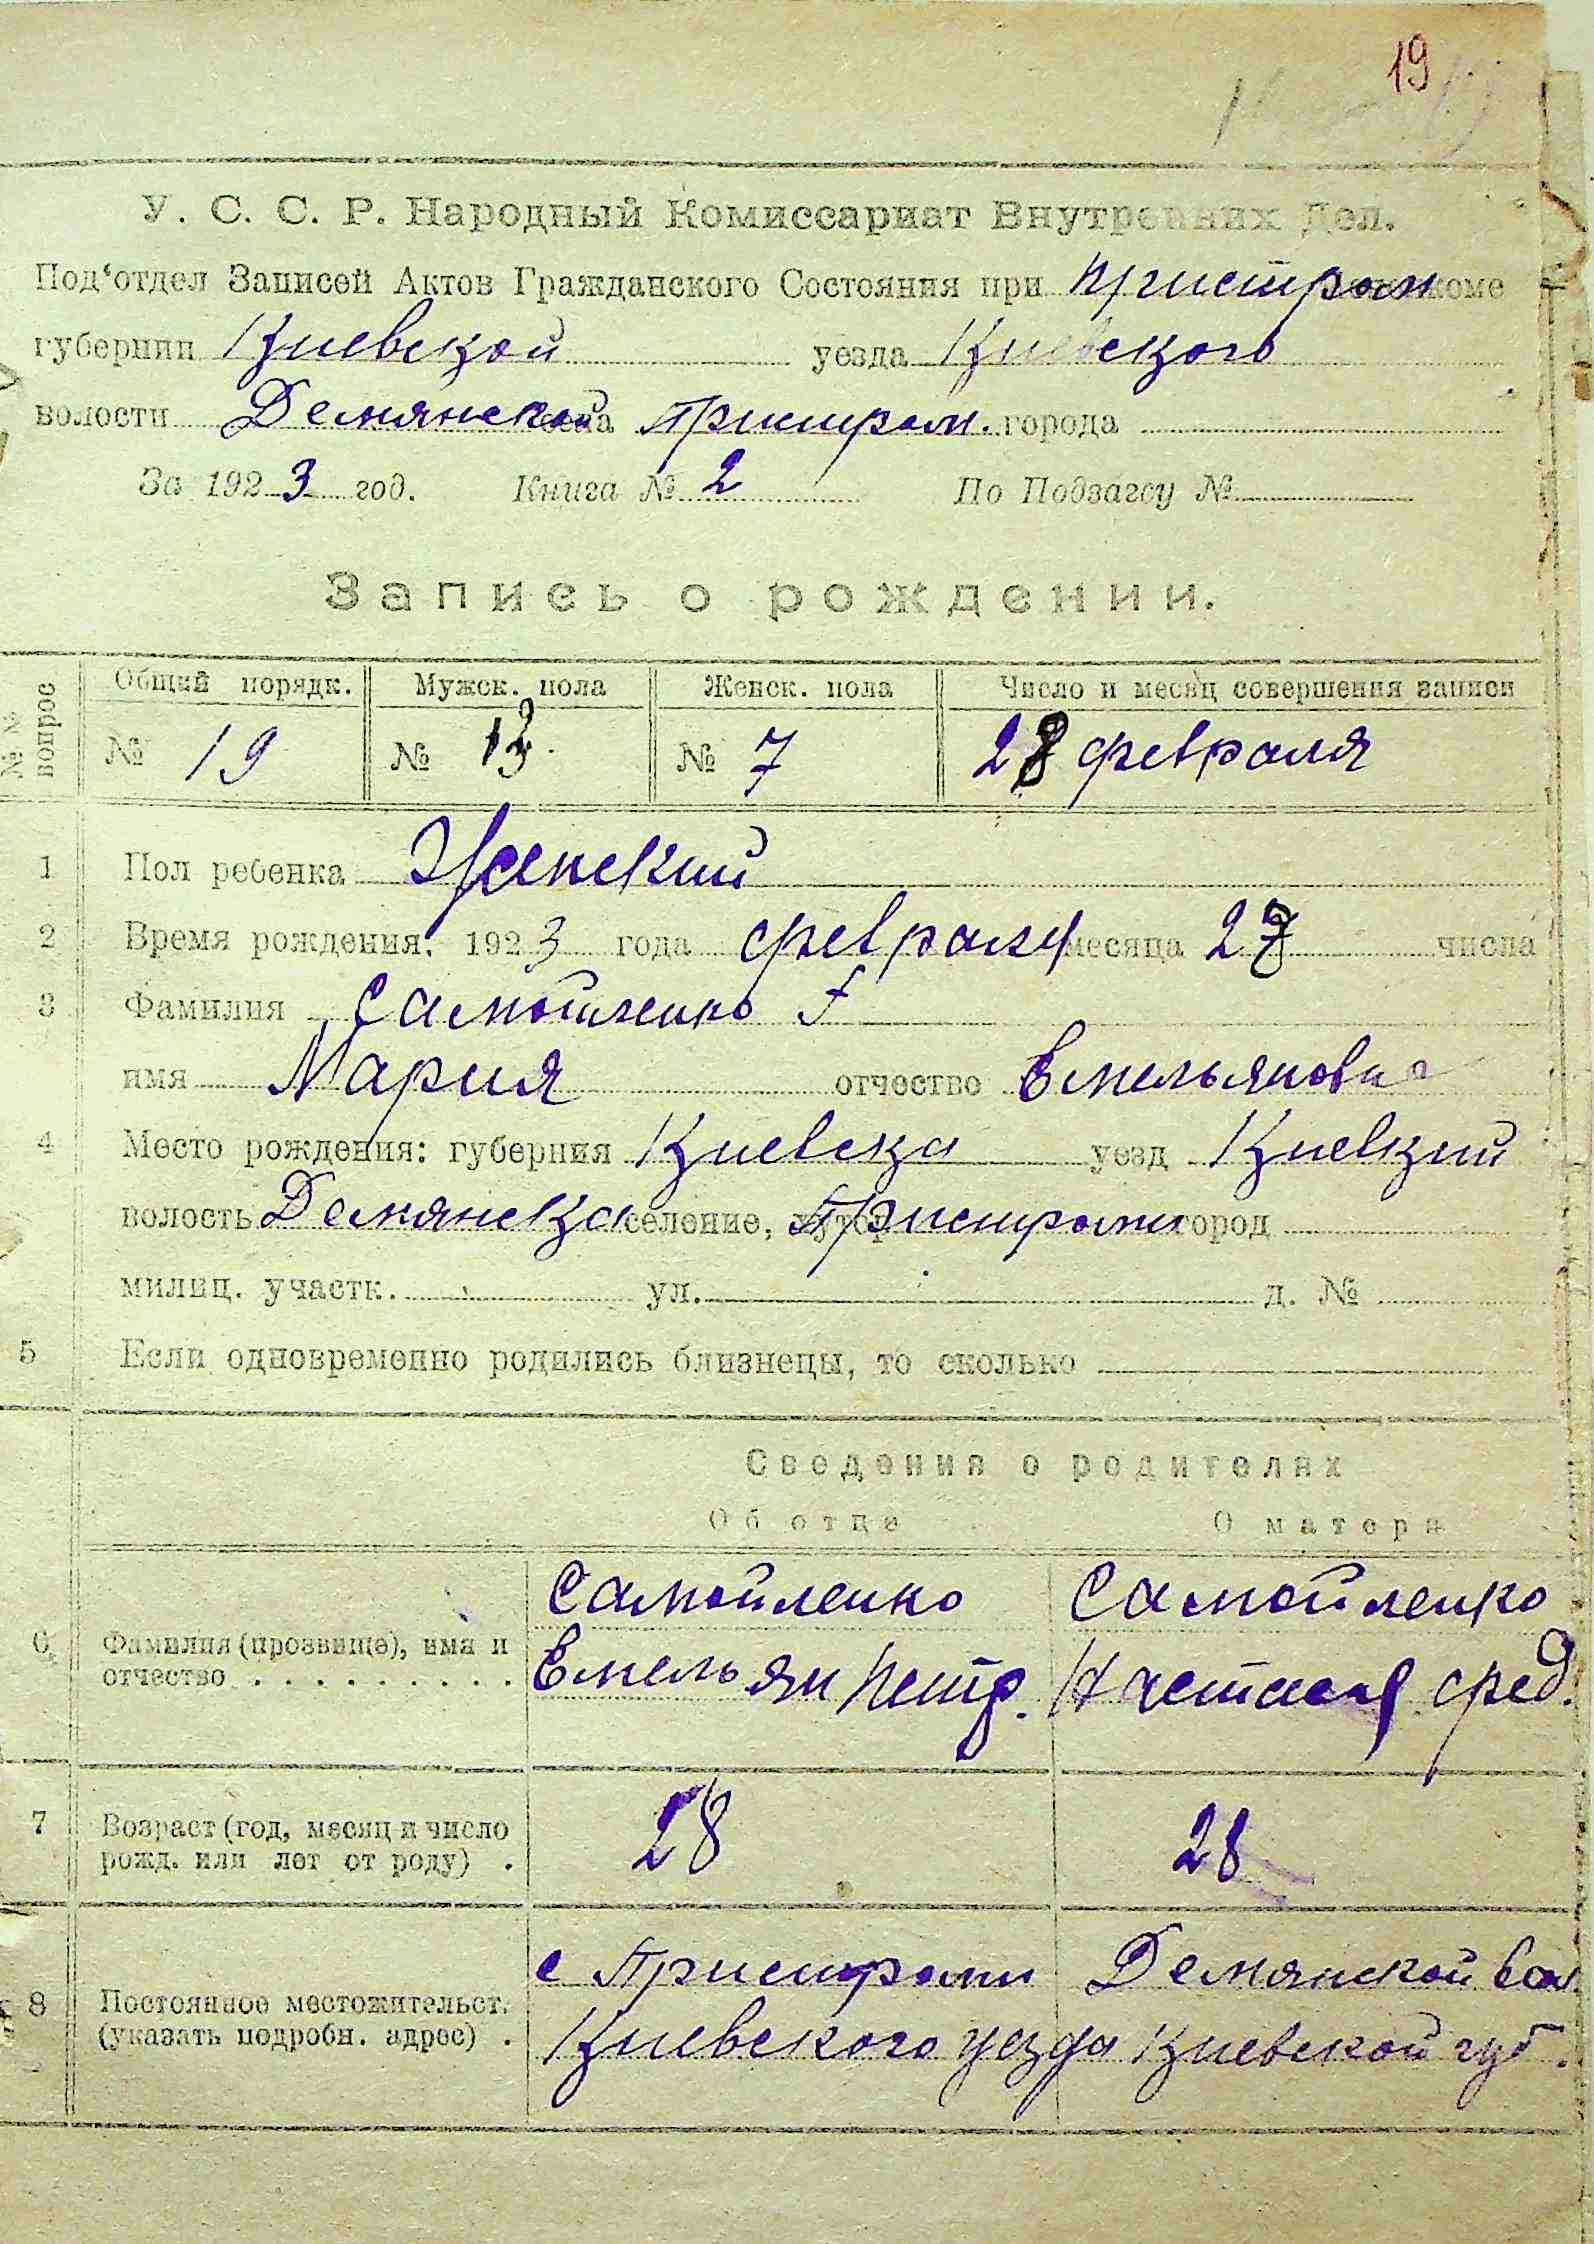 19
У. С. С. Р. Народный Комиссариат Внутренних Дел.
Под‘отдел Записей Актов Гражданского Состояния при Пристром коме
губернии Киевской уезда Киевского
волости Демянской села Пристром. города
За 1923 год. Книга № 2 По Подзагсу №
Запись о рождении.
№ № вопрос Общий порядк. Мужск. пола Женск. пола Число и месяц совершения записи
№ 19 № № 7 28 февраля
1 Пол ребенка Женский
2 Время рождения: 1923 года февраля месяца 27 числа
3 Фамилия Самойленко
имя Мария отчество Емельяновна
4 Место рождения: губерния Киевска уезд Киевкий
волость Демянска селение, хутор Пристроми город
милиц. участк. ул. д. №
5 Если одновременно родились близнецы, то сколько
Сведения о родителях
Об отце О матери
Самойленко Самойленко
6 Фамилия (прозвище), имя и отчество Емельян Петр. Настасья фед.
7 Возраст (год, месяц и число рожд. или лет от роду) 28 28
с Пристроми Демянской вол
8 Постоянное местожительст. (указать подробн. адрес) Киевского уезда Киевской губ.